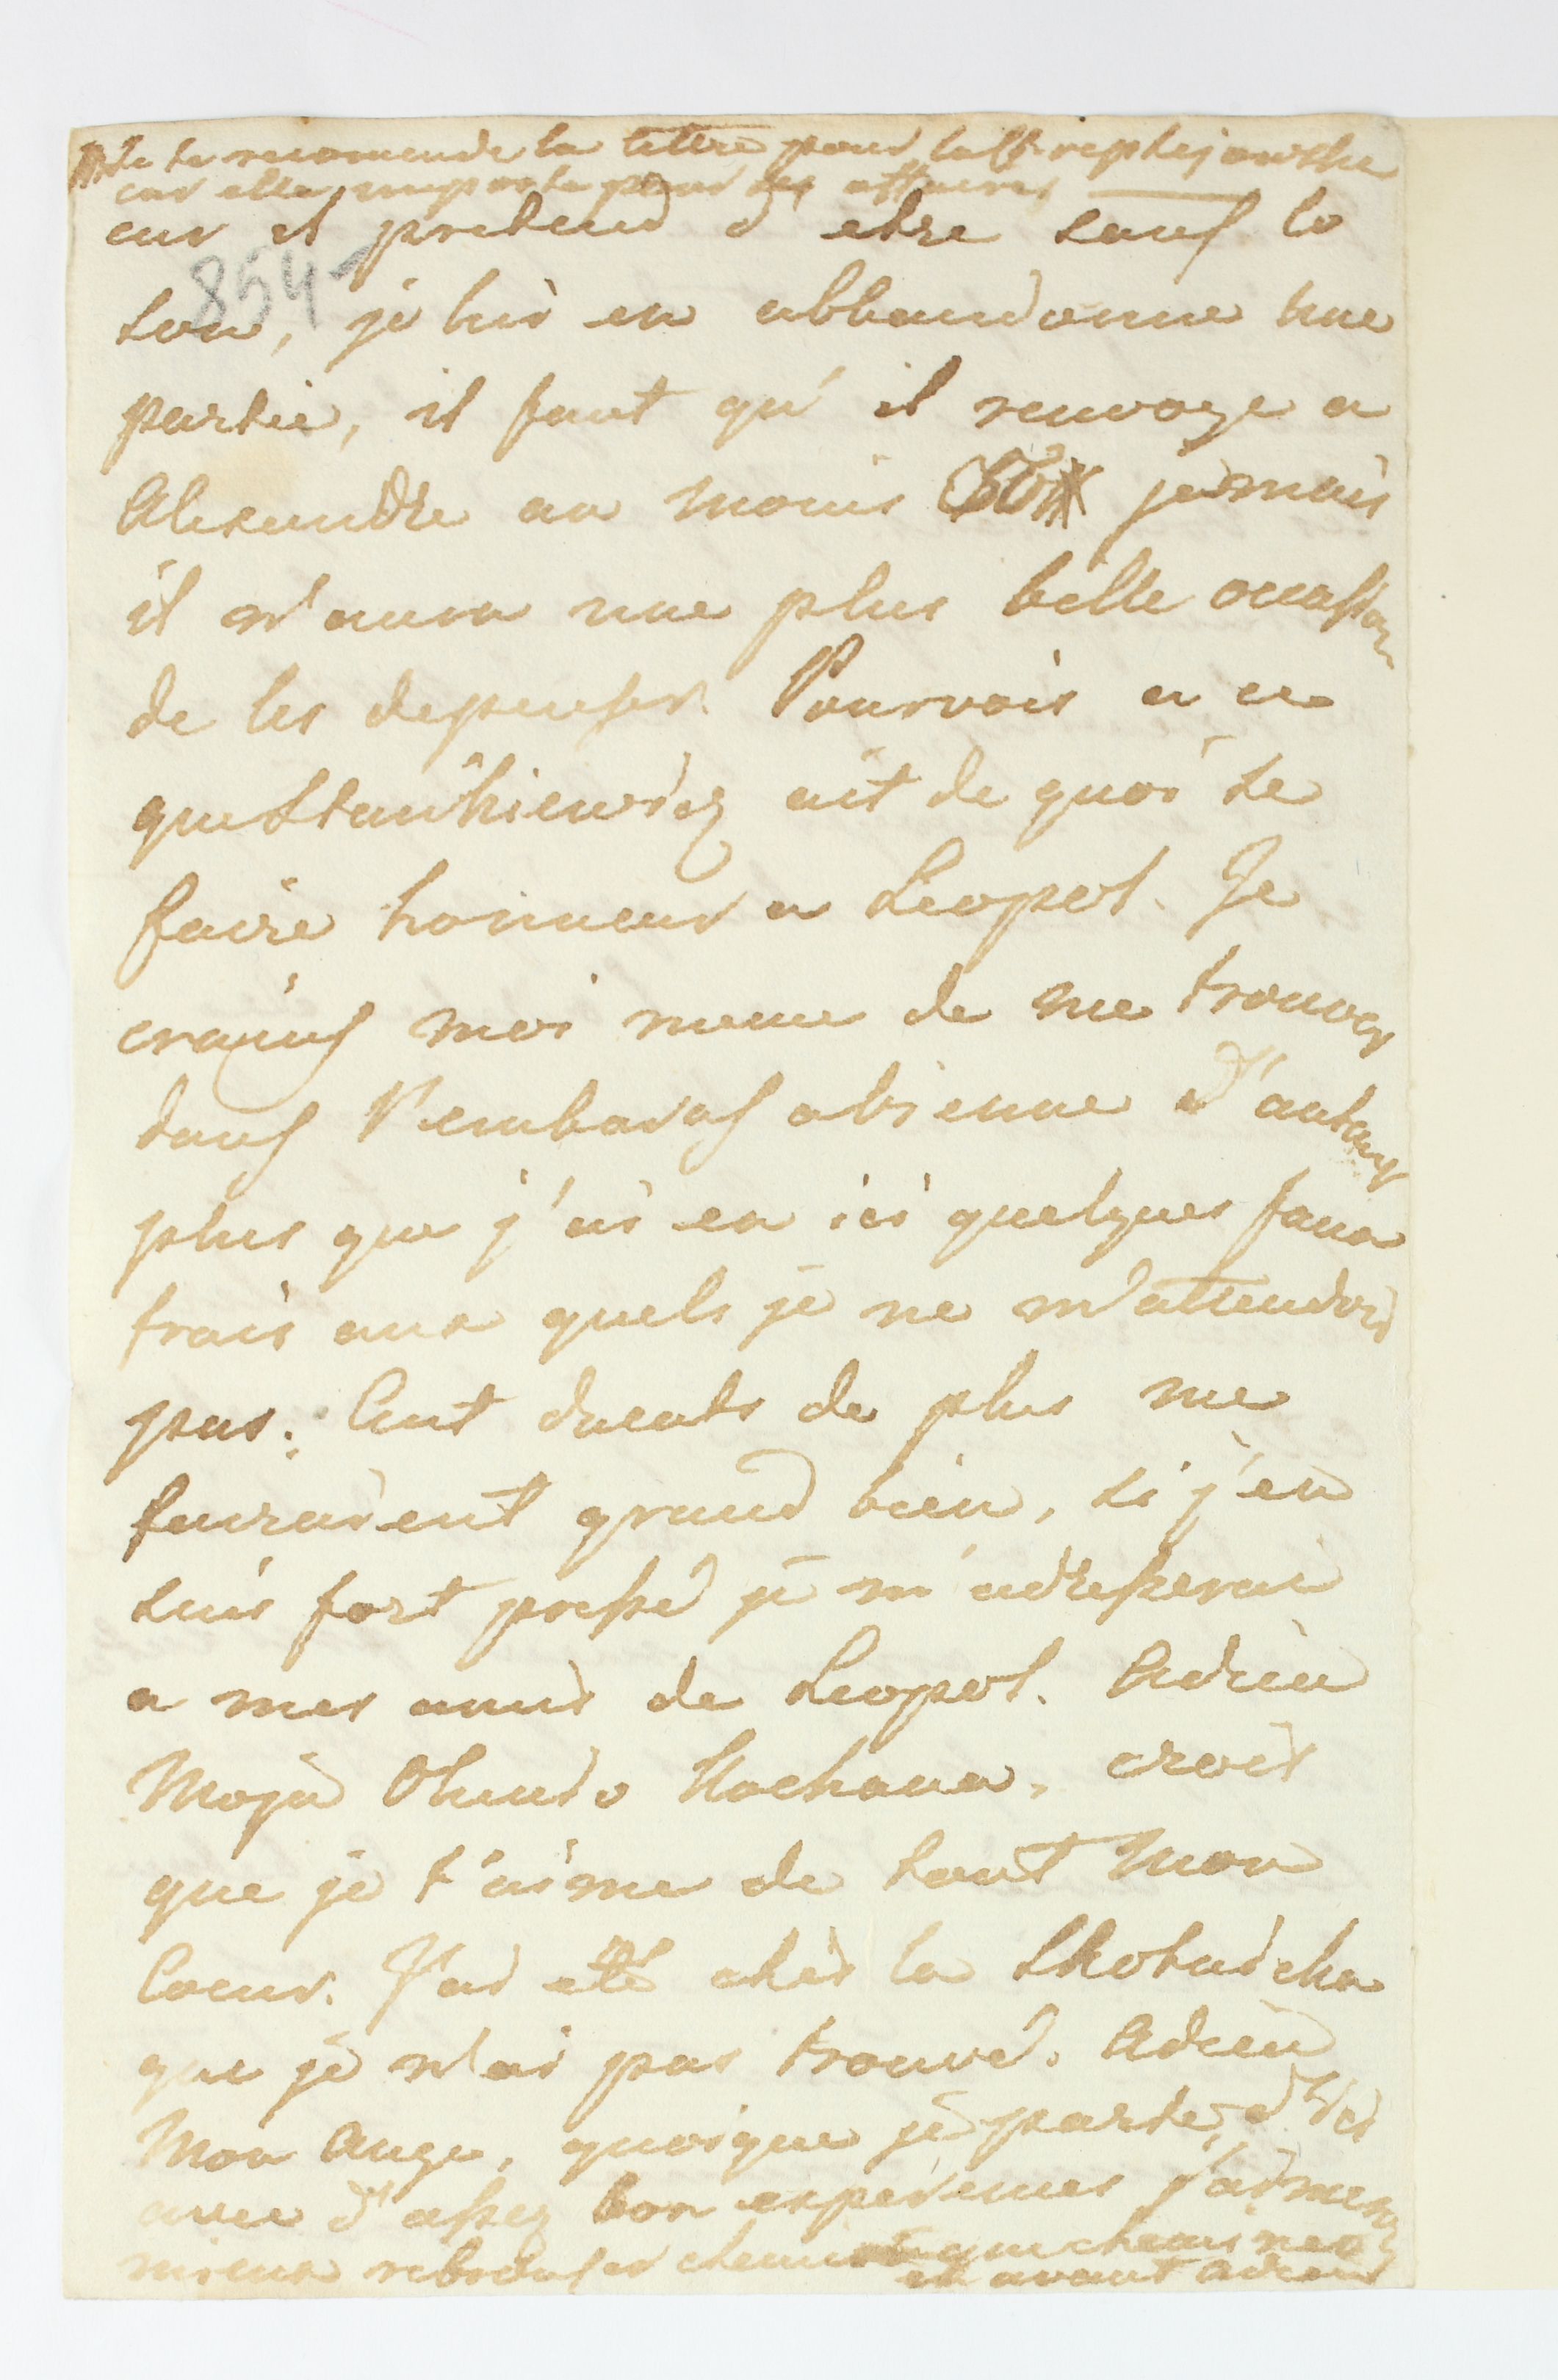 Je te recomende la lettre pour
car elle importe pour les affaires
car il pretend d'etre sans le
sou, je lui en abbandonne une
854
partie, il faut qu'il renvoye a
Alexandre au moins jamais
il n'aura une plus belle occasion
de les depenser. Pourvois a ce
que Stankiewicz ait de quoi se
faire honneur a Leopol. Je
crains moi meme de me trouver
dans l'embaras a Vienne d'autant
plus que j'ai eu ici quelques faux
frais aux quels je ne m'attendois
pas. Cent ducats de plus me
fairaient grand bien, si j'en
suis fort pressé je m'adresserai
a mes amis de Leopol. Adieu
Moja Oluniu Kochana, crois
que je t'aime de tout mon
Coeur. J'ai eté chés la
que je n'ai pas trouvé. Adieu
Mon Ange, quoique je parte d'ici
avec d'assez bon
mieux rebrousser chemin que
en avant Adieu